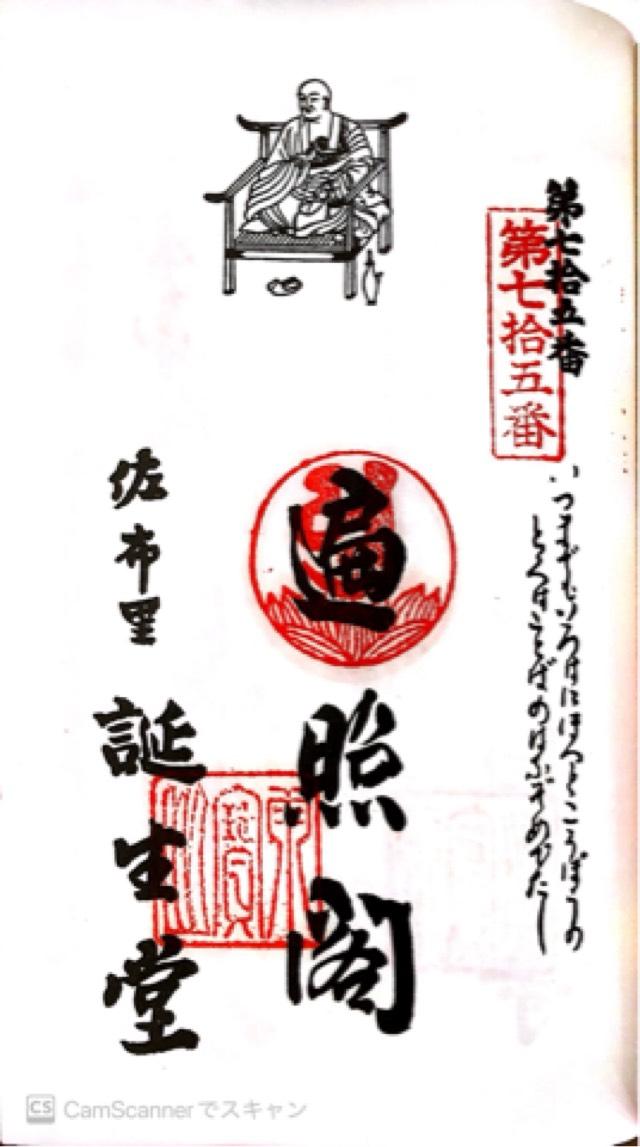 第七拾五番
第七拾五番
いつまでもいろはにほへとこうぼうの
とくはことばの
めでたし
遍照閣
佐布里
誕生堂
CS CamScannerでスキャン